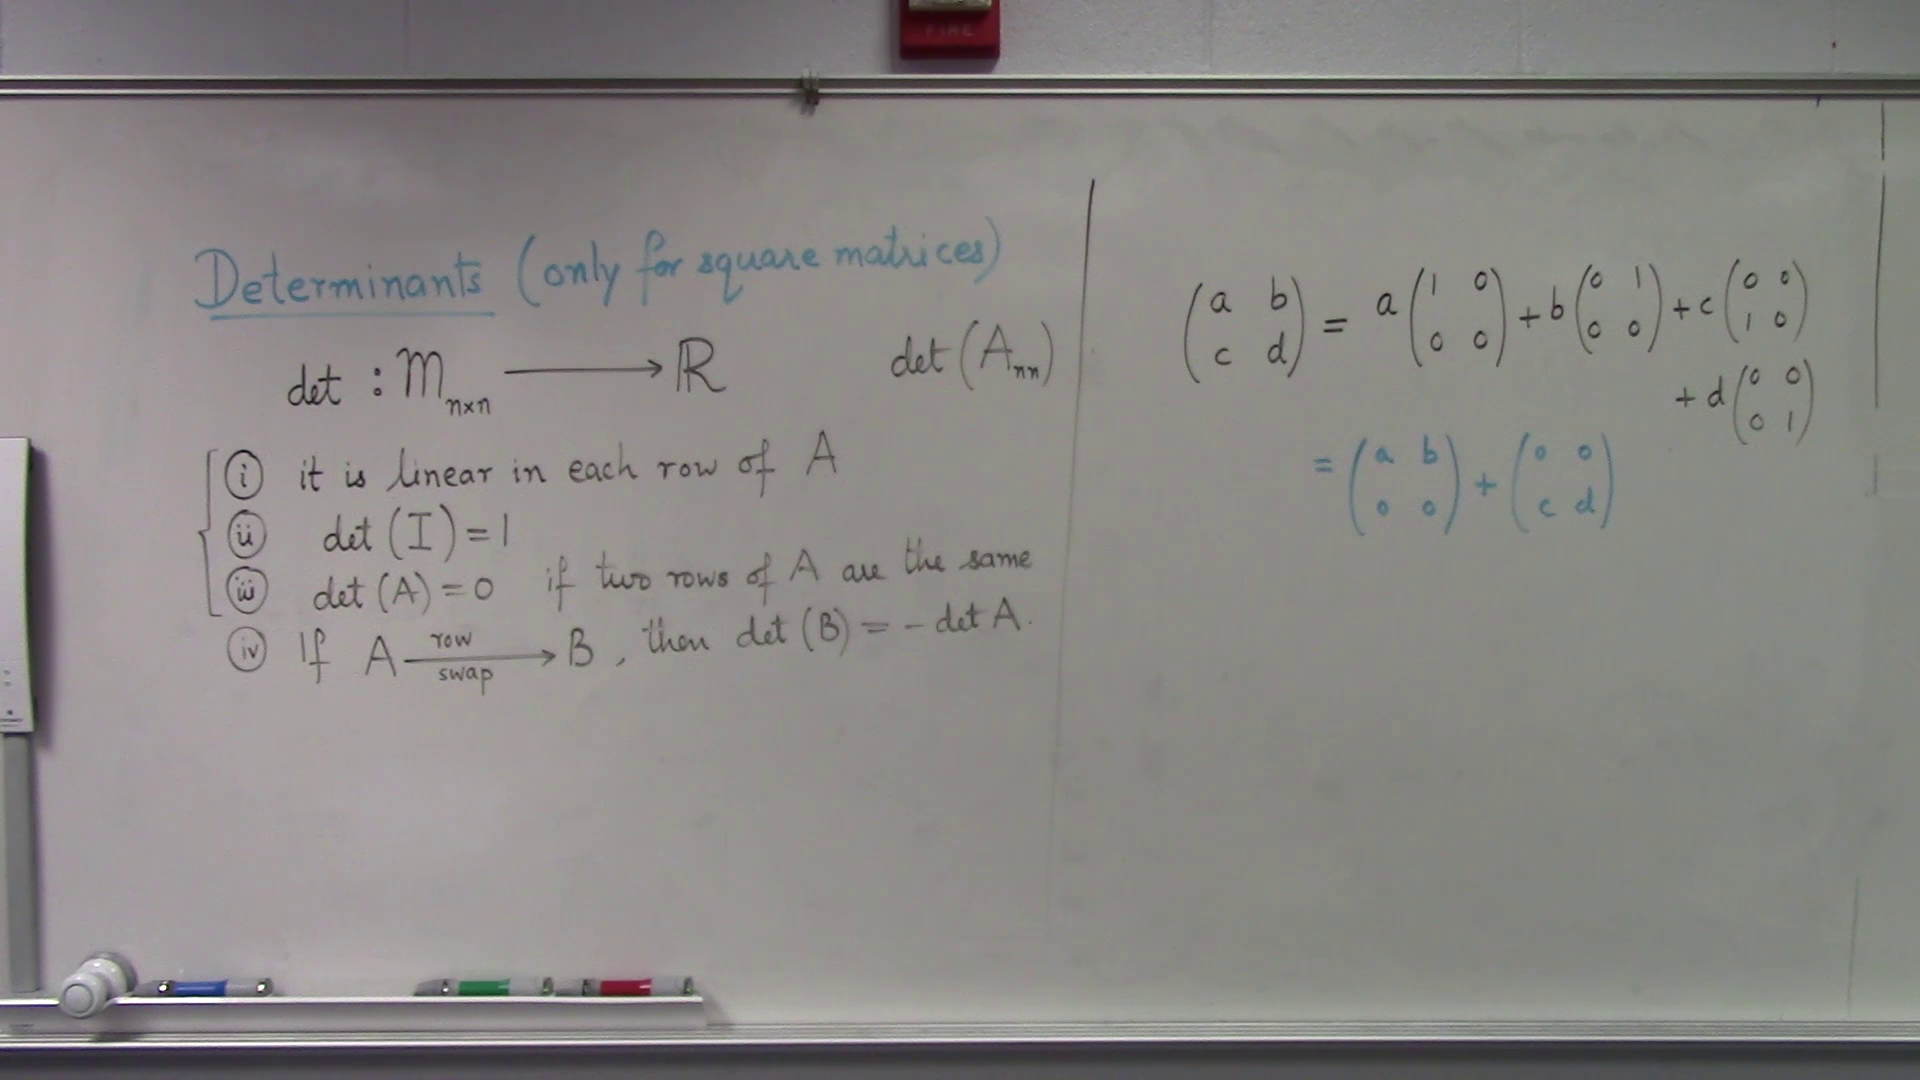 FIRE
Determinants (only for square matrices)
det : M_{n×n} ⟶ ℝ    det(A_{nn})
(i) it is linear in each row of A
(ii) det(I) = 1
(iii) det(A) = 0 if two rows of A are the same
(iv) If A —row swap→ B, then det(B) = - det A.
(a b; c d) = a(1 0; 0 0) + b(0 1; 0 0) + c(0 0; 1 0)
+ d(0 0; 0 1)
= (a b; 0 0) + (0 0; c d)